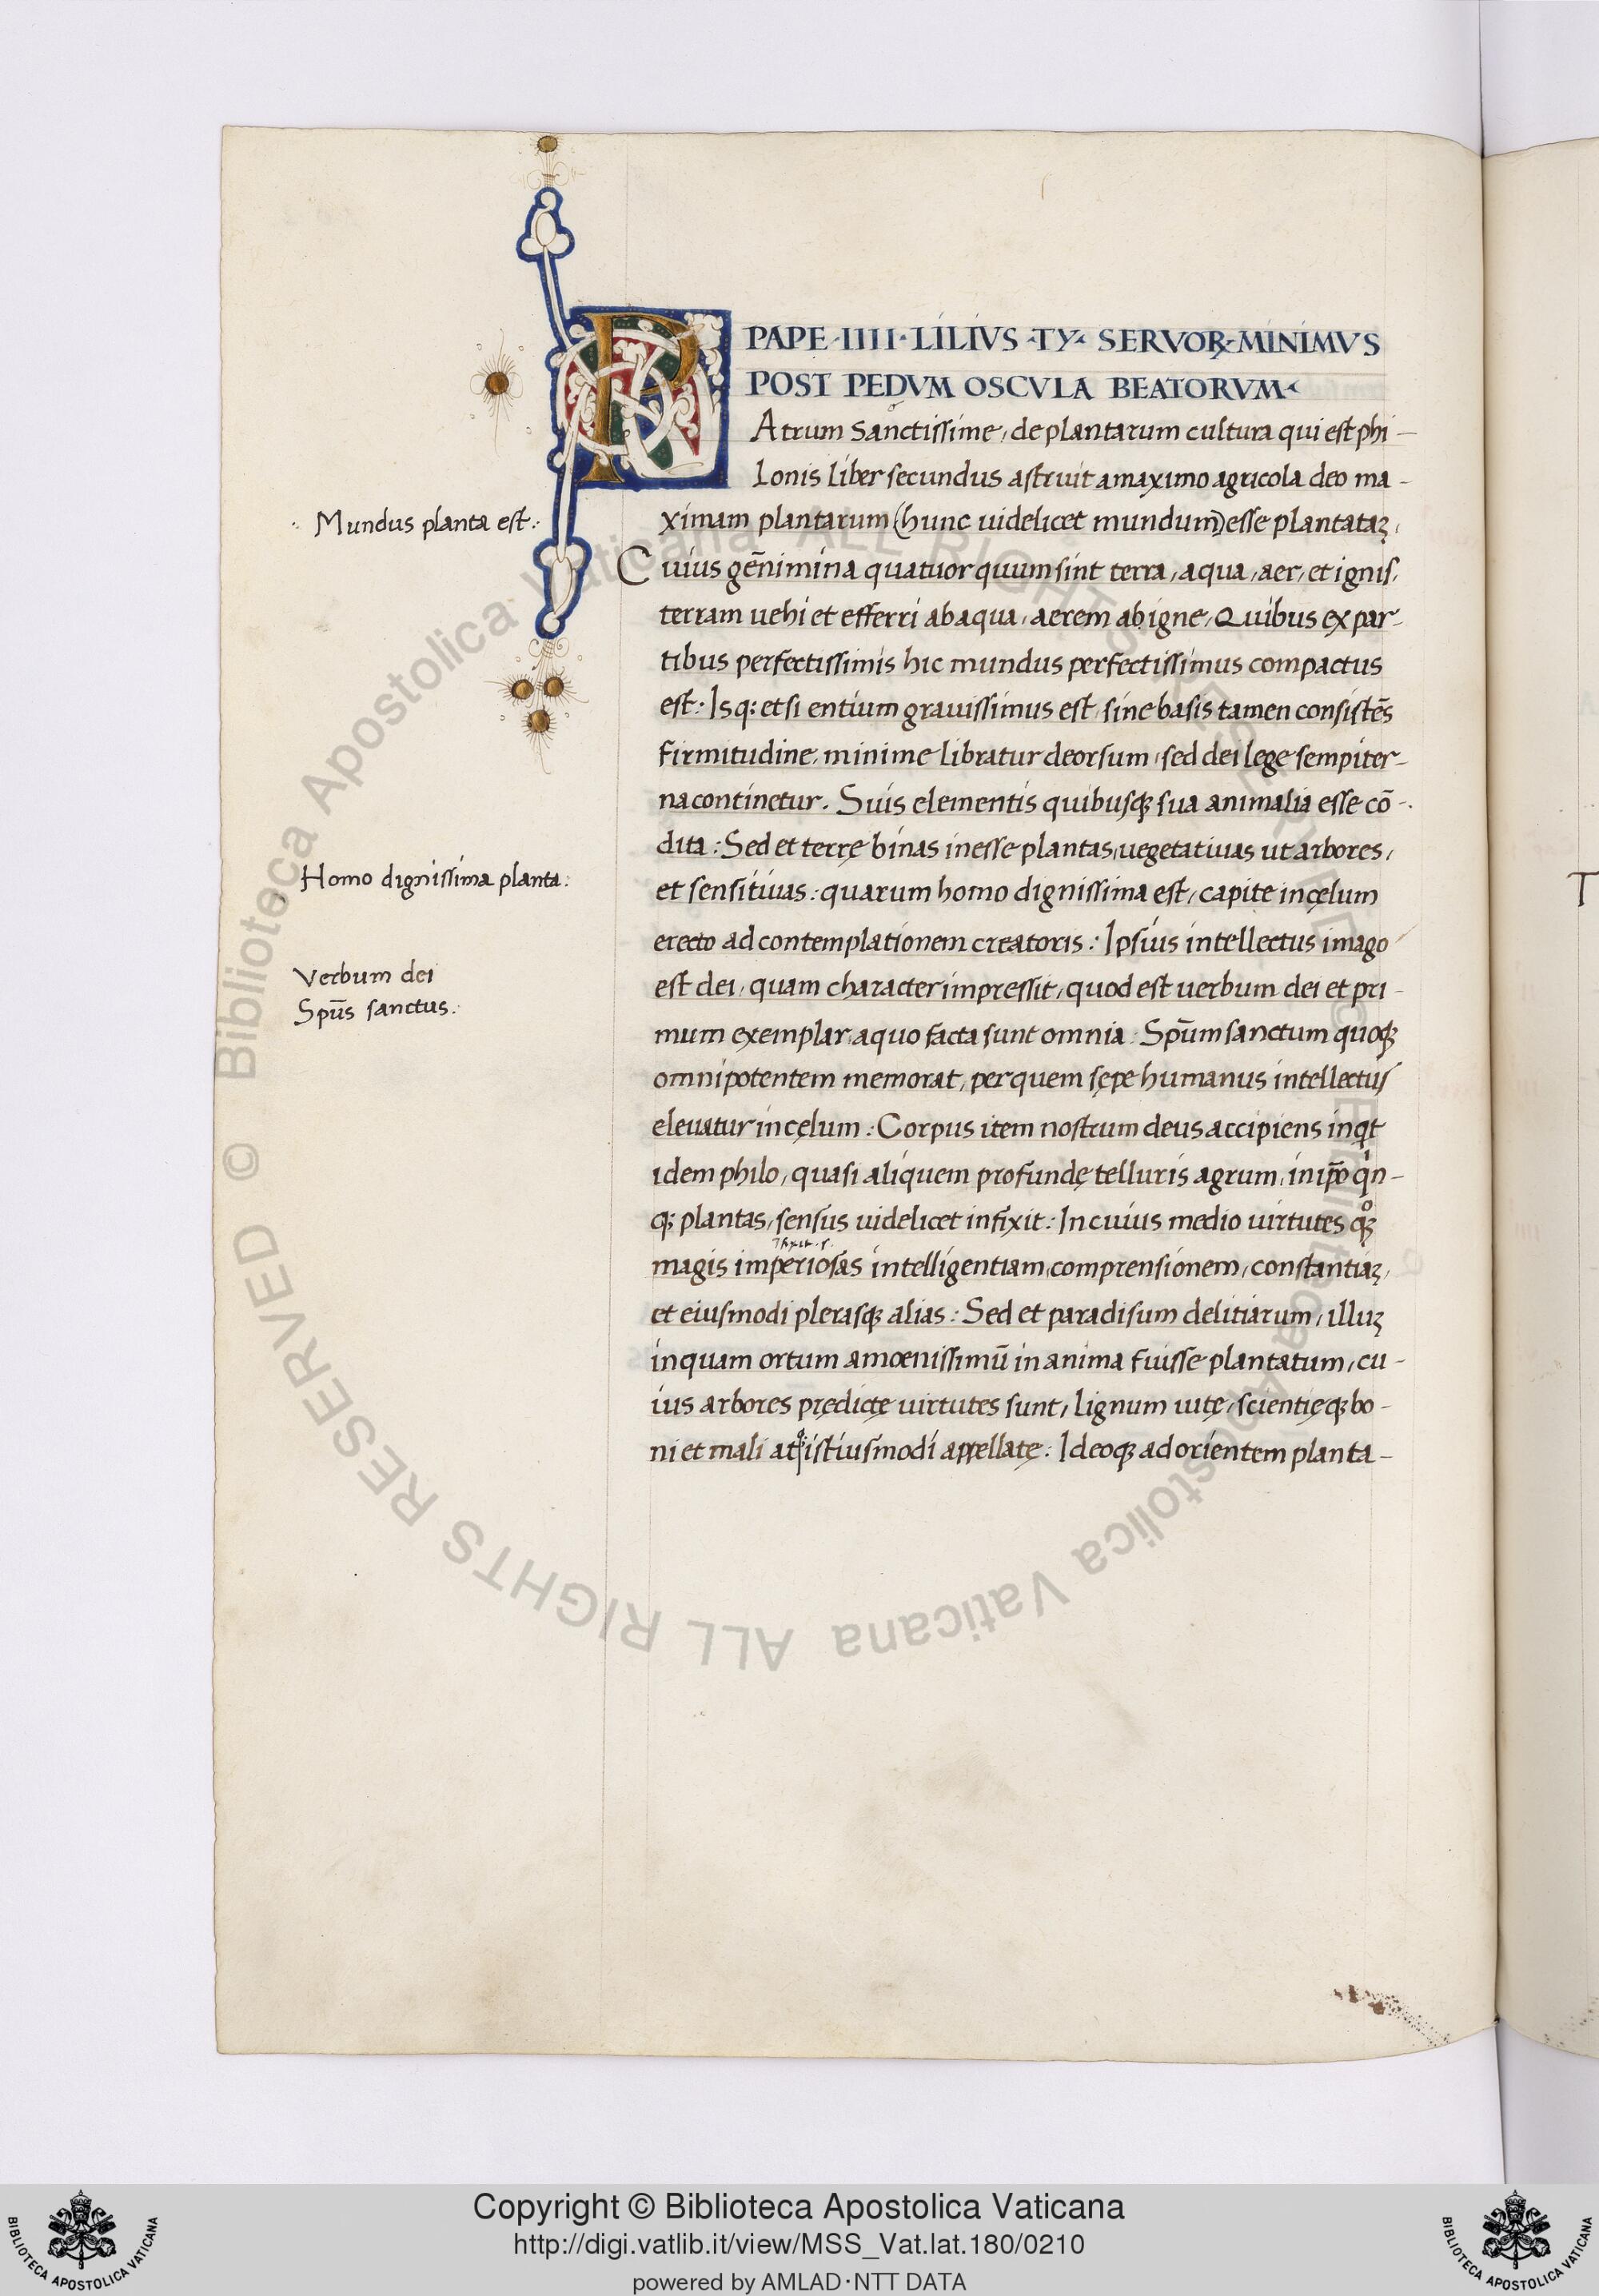 PAPE · IIII · LILIVS · TY · SERVOꝜ · MINIMVS
POST PEDVM OSCVLA BEATORVM
PAtrum sanctissime, de plantarum cultura qui est phi-
lonis liber secundus astruit a maximo agricola deo ma-
Mundus planta est.
ximam plantarum (hunc uidelicet mundum) esse plantataꝫ,
Cuius gēnimina quatuor quum sint terra, aqua, aer, et ignis,
terram uehi et efferri ab aqua, aerem ab igne, Quibus ex par-
tibus perfectissimis hic mundus perfectissimus compactus
est: Isq: etsi entium grauissimus est, sine basis tamen consistēs
firmitudine, minime libratur deorsum, sed dei lege sempiter-
na continetur. Suis elementis quibusqꝫ sua animalia esse cō-
dita: Sed et terrę binas inesse plantas, uegetatiuas ut arbores,
Homo dignissima planta:
et sensitiuas: quarum homo dignissima est, capite in cęlum
erecto ad contemplationem creatoris: Ipsius intellectus imago
Verbum dei
est dei, quam character impressit, quod est uerbum dei et pri-
Spūs sanctus:
mum exemplar, a quo facta sunt omnia: Spūm sanctum quoqꝫ
omnipotentem memorat, per quem sępe humanus intellectus
eleuatur in cęlum: Corpus item nostrum deus accipiens inqͥt
idem philo, quasi aliquem profundę telluris agrum, in ip̄o qͥn-
qꝫ plantas, sensus uidelicet infixit: In cuius medio uirtutes qͦꝫ
magis imperiosas intelligentiam, comprensionem, constantiaꝫ,
et eiusmodi plerasqꝫ alias: Sed et paradisum delitiarum, illuꝫ
inquam ortum amœnissimū in anima fuisse plantatum, cu-
ius arbores prędictę uirtutes sunt, lignum uitę, scientięqꝫ bo-
ni et mali atqꝫ istiusmodi appellatę: Ideoqꝫ ad orientem planta-
T
© Biblioteca Apostolica Vaticana ALL RIGHTS RESERVED © Biblioteca Apostolica Vaticana ALL RIGHTS RESERVED
BIBLIOTECA APOSTOLICA VATICANA
Copyright © Biblioteca Apostolica Vaticana
http://digi.vatlib.it/view/MSS_Vat.lat.180/0210
powered by AMLAD·NTT DATA
BIBLIOTECA APOSTOLICA VATICANA